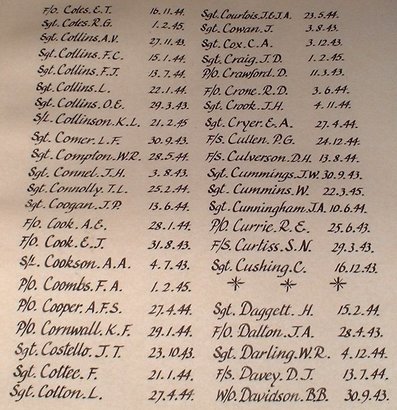 F/O. Coles. E.T. 16.11.44.
Sgt. Coles. R.G. 1.2.45.
Sgt. Collins. A.V. 27.11.43.
Sgt. Collins. F.C. 15.1.44.
Sgt. Collins. F.J. 13.7.44.
Sgt. Collins. L. 22.1.44.
Sgt. Collins. O.E. 29.3.43.
S/L. Collinson. K.L. 21.2.45
Sgt. Comer. L.F. 30.9.43.
Sgt. Compton. W.R. 28.5.44.
Sgt. Connel. J.H. 3.8.43.
Sgt. Connolly. T.L. 25.2.44.
Sgt. Coogan. J.P. 13.6.44.
F/O. Cook. A.E. 28.1.44.
F/O. Cook. E.J. 31.8.43.
S/L. Cookson. A.A. 4.7.43.
P/O. Coombs. F.A. 1.2.45.
P/O. Cooper. A.F.S. 27.4.44.
P/O. Cornwall. K.F. 29.1.44.
Sgt. Costello. J.T. 23.10.43.
Sgt. Coltec. F. 21.1.44.
Sgt. Colton. L. 27.4.44.
Sgt. Courlois. J.E.J.A. 23.5.44.
Sgt. Cowan. J. 3.8.43.
Sgt. Cox. C.A. 3.12.43.
Sgt. Craig. J.D. 1.2.45.
P/O. Crawford. D. 11.3.43.
F/O. Crone. R.D. 3.6.44.
Sgt. Crook. J.H. 4.11.44.
Sgt. Cryer. E.A. 27.4.44.
F/S. Cullen. P.G. 24.12.44.
F/S. Culverson. D.H. 13.8.44.
Sgt. Cummings. J.W. 30.9.43.
Sgt. Cummins. W. 22.3.45.
Sgt. Cunningham. J.A. 10.6.44.
P/O. Currie. R.E. 25.6.43.
F/S. Curtiss. S.N. 29.3.43.
Sgt. Cushing. C. 16.12.43.
Sgt. Daggett. H. 15.2.44.
F/O. Dalton. J.A. 28.4.43.
Sgt. Darling. W.R. 4.12.44.
F/S. Davey. D.J. 13.7.44.
W/O. Davidson. B.B. 30.9.43.